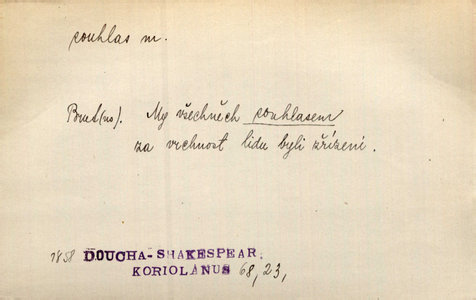 souhlas m.
Brut(us). My všechněch souhlasem
za vrchnost lidu byli zřízeni.
1858 DOUCHA-SHAKESPEAR,
KORIOLANUS 68, 23,